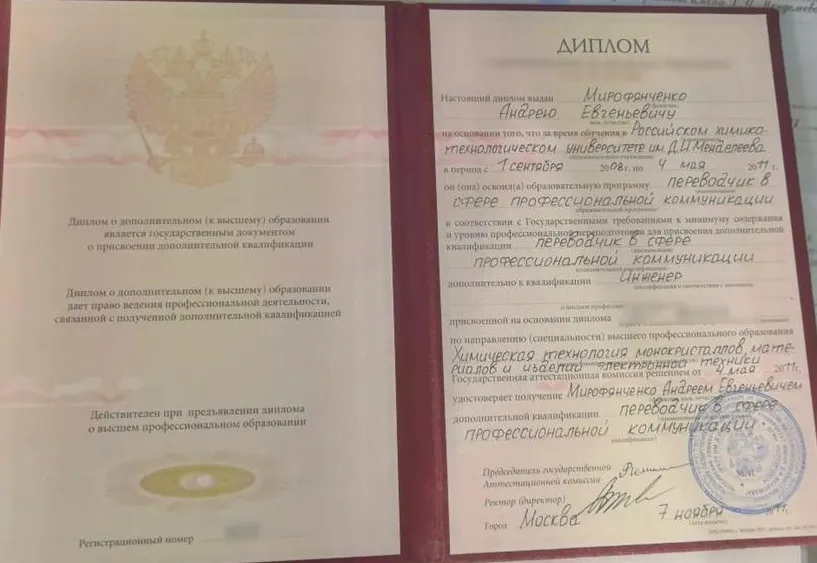 Диплом о дополнительном (к высшему) образовании
является государственным документом
о присвоении дополнительной квалификации
Диплом о дополнительном (к высшему) образовании
дает право ведения профессиональной деятельности,
связанной с полученной дополнительной квалификацией
Действителен при предъявлении диплома
о высшем профессиональном образовании
Регистрационный номер
ДИПЛОМ
Настоящий диплом выдан Мирофянченко
Андрею Евгеньевичу
на основании того, что за время обучения в Российском химико-
технологическом университете им. Д.И. Менделеева
в период с 1 сентября 2008 г. по 4 мая 2011 г.
он (она) освоил(а) образовательную программу переводчик в
сфере профессиональной коммуникации
в соответствии с Государственными требованиями к минимуму содержания
и уровню профессиональной переподготовки для присвоения дополнительной
квалификации переводчик в сфере
профессиональной коммуникации
дополнительно к квалификации Инженер
присвоенной на основании диплома
по направлению (специальности) высшего профессионального образования
Химическая технология монокристаллов, мате-
риалов и изделий электронной техники
Государственная аттестационная комиссия решением от 4 мая 2011 г.
удостоверяет получение Мирофянченко Андреем Евгеньевичем
дополнительной квалификации переводчик в сфере
профессиональной коммуникации
Председатель государственной
Аттестационной комиссии
Ректор (директор)
Город Москва 7 ноября 2011 г.